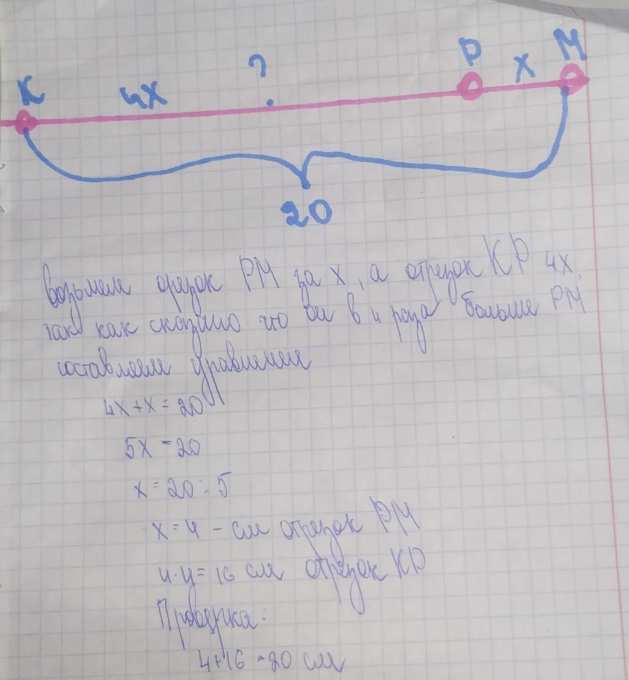 К 4х ? Р х М
20
возьмем отрезок РМ за х, а отрезок КР 4х,
так как сказано что он в 4 раза больше РМ
составляем уравнение
4х+х=20
5х=20
х=20:5
х=4 - см отрезок РМ
4·4=16 см отрезок КР
Проверка:
4+16=20 см